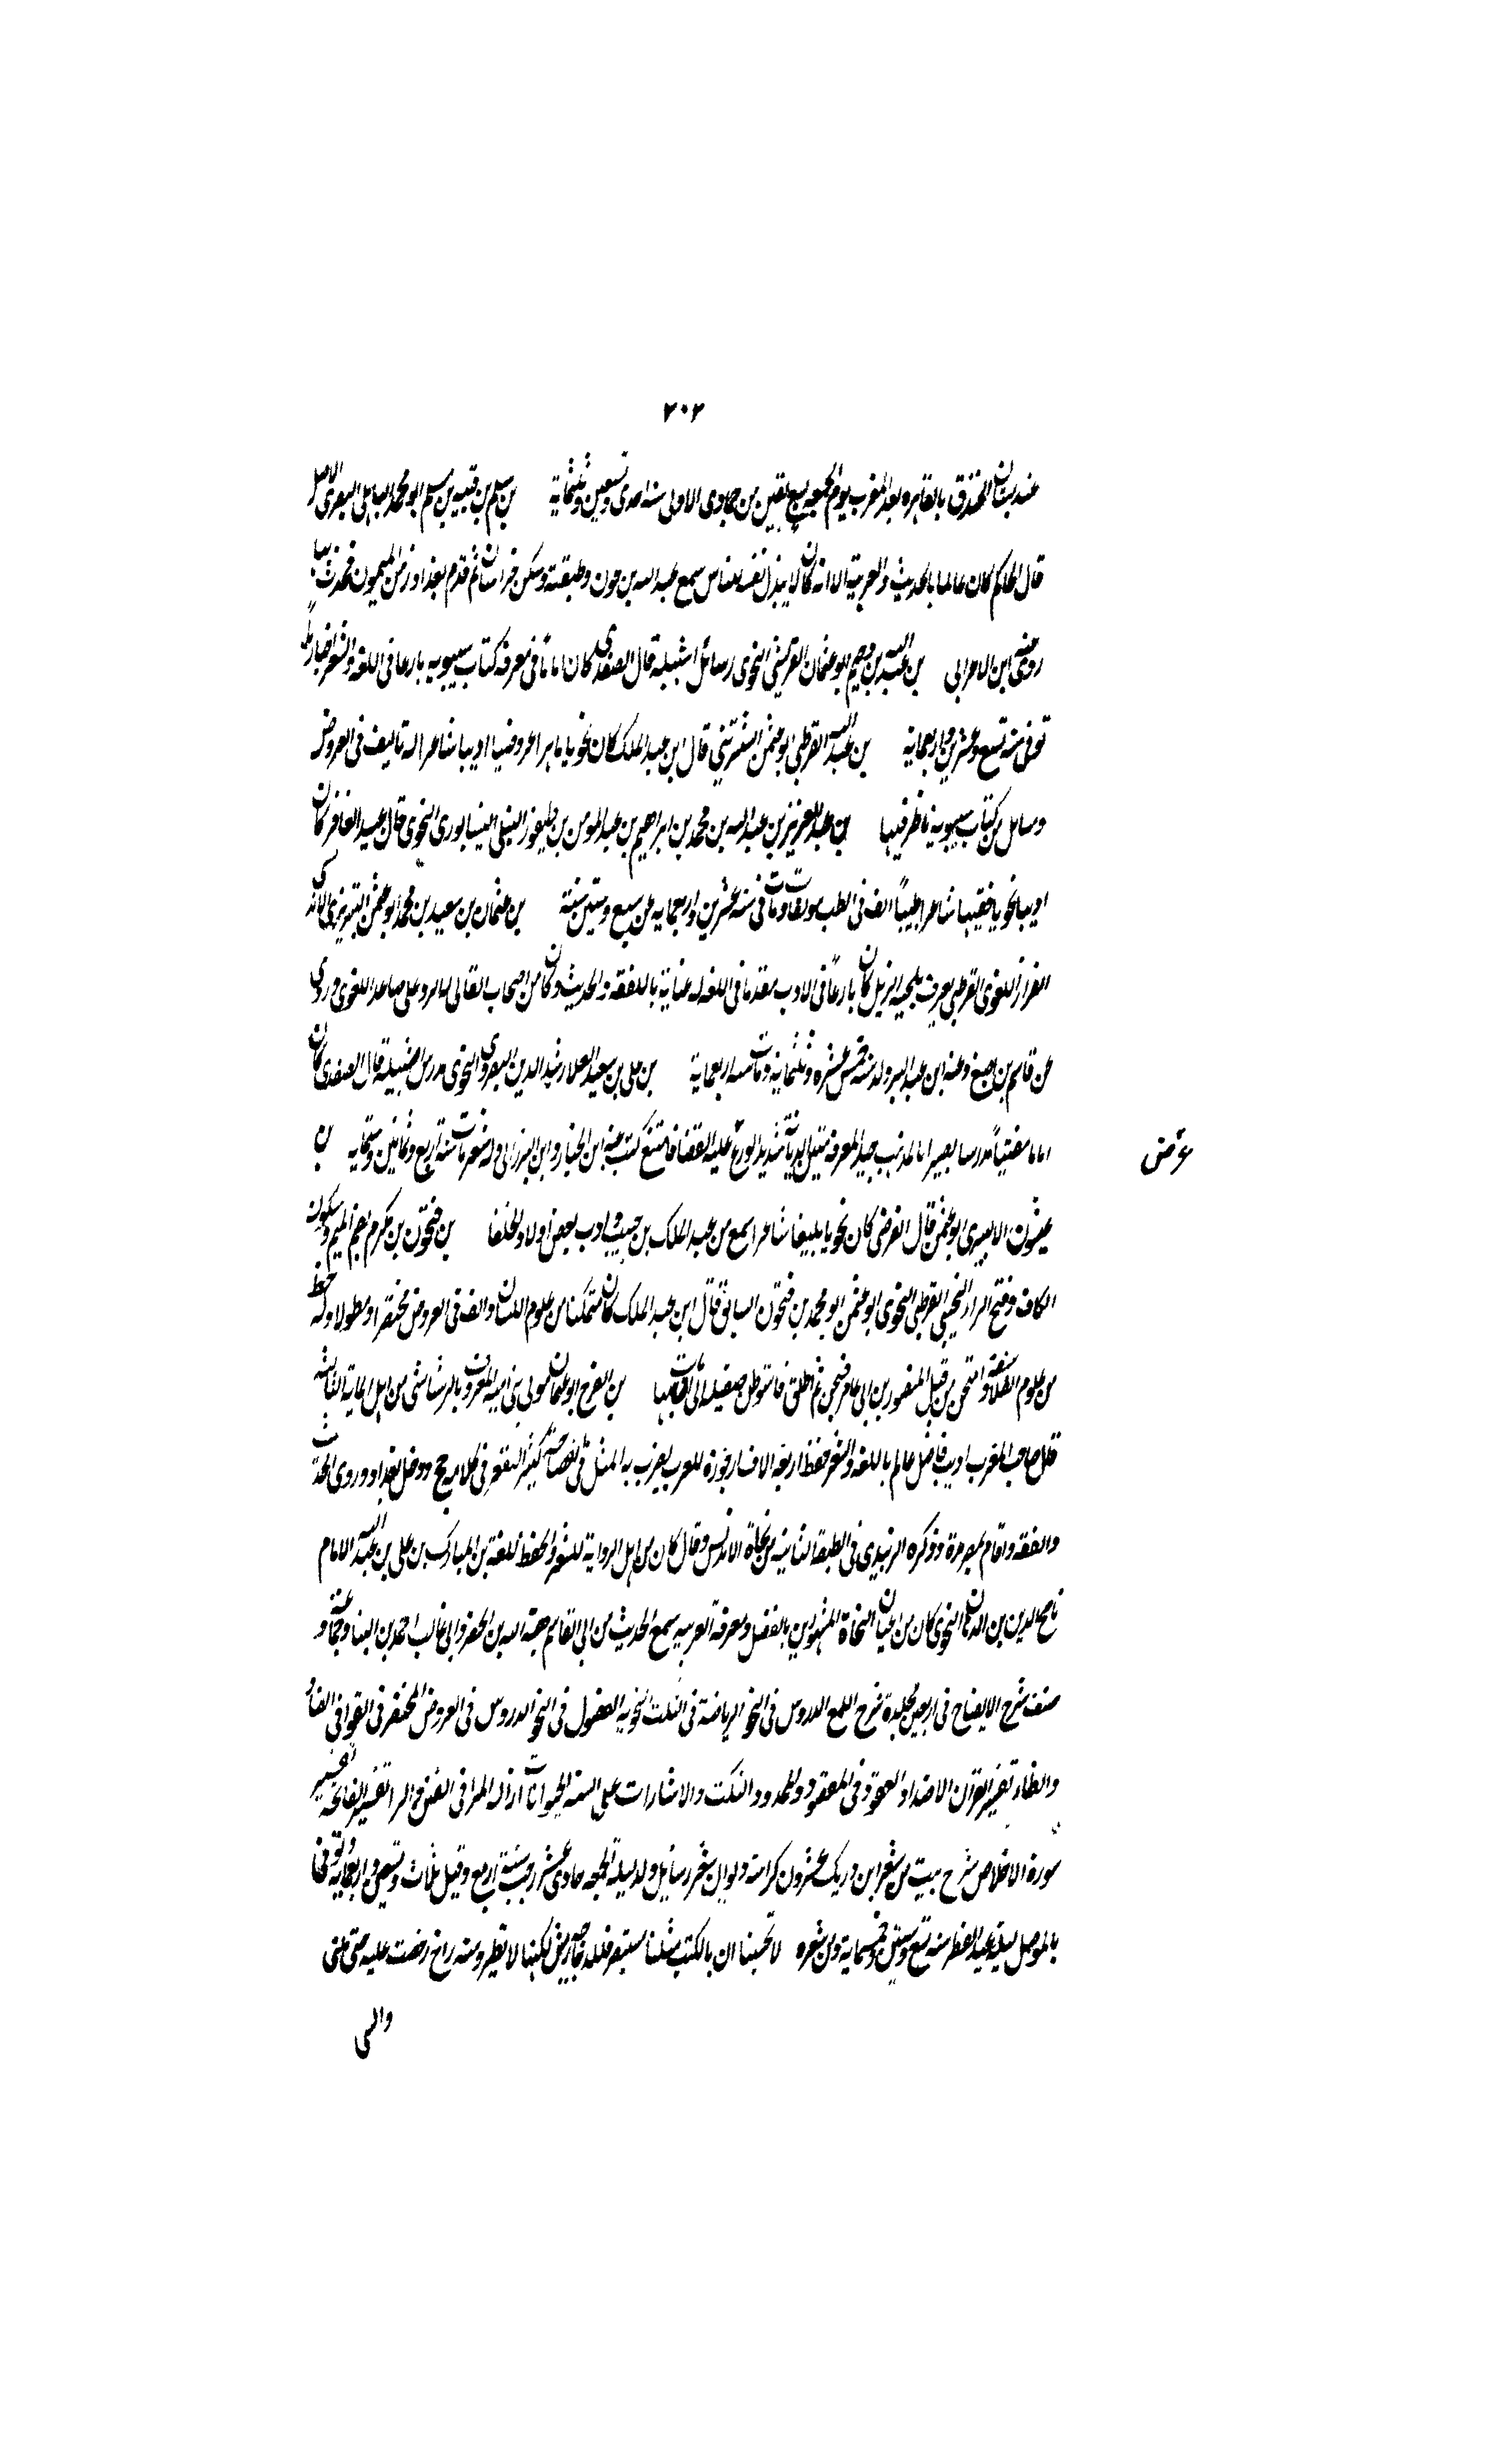 ٢٠٢
عند بستان الخندق بالقاهرة بعد المغرب يوم الجمعة لسبع بقين من جمادى الاولى سنة احدى وتسعين وثلثماية بن سلم بن قتيبة بن مسلم ابو محمد الباهلى البصرى الاصل
قال الحاكم كان عالما بالحديث والعربية الا انه كان لا يبذل نفسه للناس سمع عبد الله بن عون وطبقته وسكن خراسان ثم قدم بغداد زمن الميمون فحدث بها
روى عنه ابن الاعرابى بن عبد الله بن دحيم ابو عثمان القرينى النحوى رسائل اشبيلة قال الصفدى كان اماما فى معرفة كتاب سيبويه بارعا فى اللغة والشعر اخباريا
توفى سنة تسع وعشرين واربعماية بن عبد الله القرطبى ابو عثمن الشنترينى قال ابن عبد الملك كان نحويا ماهرا عروضيا اديبا شاعرا له تاليف فى العروض
ومسايل من كتاب سيبويه ناظر فيها بن عبد العزيز بن عبد الله بن محمد بن ابراهيم بن عبد المومن بن النيلى النيسابورى النحوى قال عبد الغافر كان
اديبا نحويا فقيها شاعرا طبيبا الف فى الطب مولفات ومات فى سنة عشرين واربعماية عن سبع وستين سنة بن عثمان بن سعيد بن محمد ابو عثمن البربرى الاندلسى
القزاز اللغوى القرطبى يعرف بلحية الزبل كان بارعا فى الادب مقدما فى اللغة له عناية بالفقه والحديث وكان من اصحاب القالى له الرد على صاعد اللغوى وروى
عن قاسم بن اصبغ وعنه ابن عبد البر ولد سنة خمس عشرة وثلثماية ومات سنة اربعماية بن على بن سعيد العلا رشيد الدين البصروى النحوى مدرس الشبلية قال الصفدى كان
اماما مفتيا مدرسا بصيرا بالمذهب جيد المعرفة متين الديانة شديد الورع عرض عليه القضا فامتنع كتب عنه ابن الخباز وابن البرزالى وله شعر مات سنة اربع وثمانين وستماية بن
عيشون الالبيرى ابو عثمن قال الفرضى كان نحويا بليغا شاعرا سمع من عبد الملك بن حبيب وادب بعض اولاد الخلفا بن فتحون بن مكرم بضم الميم وسكون
الكاف وفتح الرا التجيبى القرطبى النحوى ابو عثمن ابو محمد بن فتحون السابق قال ابن عبد الملك كان متمكنا من علوم اللسان والف فى العروض مختصرا ومطولا وله حظ
من علوم الفلاسفة وامتحن من قبل المنصور بن ابى عامر فسجن ثم اطلق فاستوطن صقلية الى ان مات بها بن الفرج ابو عثمان مولى بنى امية المعروف بالرشاشى من اهل الماية الثالثة
قال صاحب المغرب اديب فاضل عالم باللغة والشعر حفظ اربعة الاف ارجوزة للعرب يضرب به المثل فى فصاحته كثير التقعر فى كلامه حج ودخل بغداد وروى الحديث
والفقه واقام بمصر مدة وذكره الزبيدى فى الطبقة الثانية من نحاة الاندلس وقال كان من اهل الرواية للشعر والحفظ للغة بن المبارك بن على بن عبد الله الامام
ناصح الدين بن الدهان النحوى كان من اعيان النحاة المشهورين بالفضل ومعرفة العربية سمع الحديث من ابى القاسم هبة الله بن الحصر وابى غالب احمد بن البنا وجماعة و
صنف شرح الايضاح فى اربعين مجلدة شرح اللمع الدروس فى النحو الرياضة فى النكت النحوية الفصول فى النحو الدروس فى العروض المختصر فى القوافى الضاد
والظاء تفسير القران الاضداد العقود فى المقصور والممدود النكت والاشارات على السنة الحيوانات ازالة المرا فى الغين والرا تفسير الفاتحة تفسير
سورة الاخلاص شرح بيت من شعر ابن رزيك عشرون كراسة ديوان شعر رسايل ولد ليلة الجمعة حادى عشر رجب سنة اربع وقيل ثلاث وتسعين واربعماية توفى
بالموصل ليلة عيد الفطر سنة تسع وستين وخمسماية ومن شعره لا تحسبنا ان بالكتب مثلنا ستصير فللدجاجة ريش لكنها لا تطير ومنه راخ رخصت عليه حتى ملنى
والشى
عرض